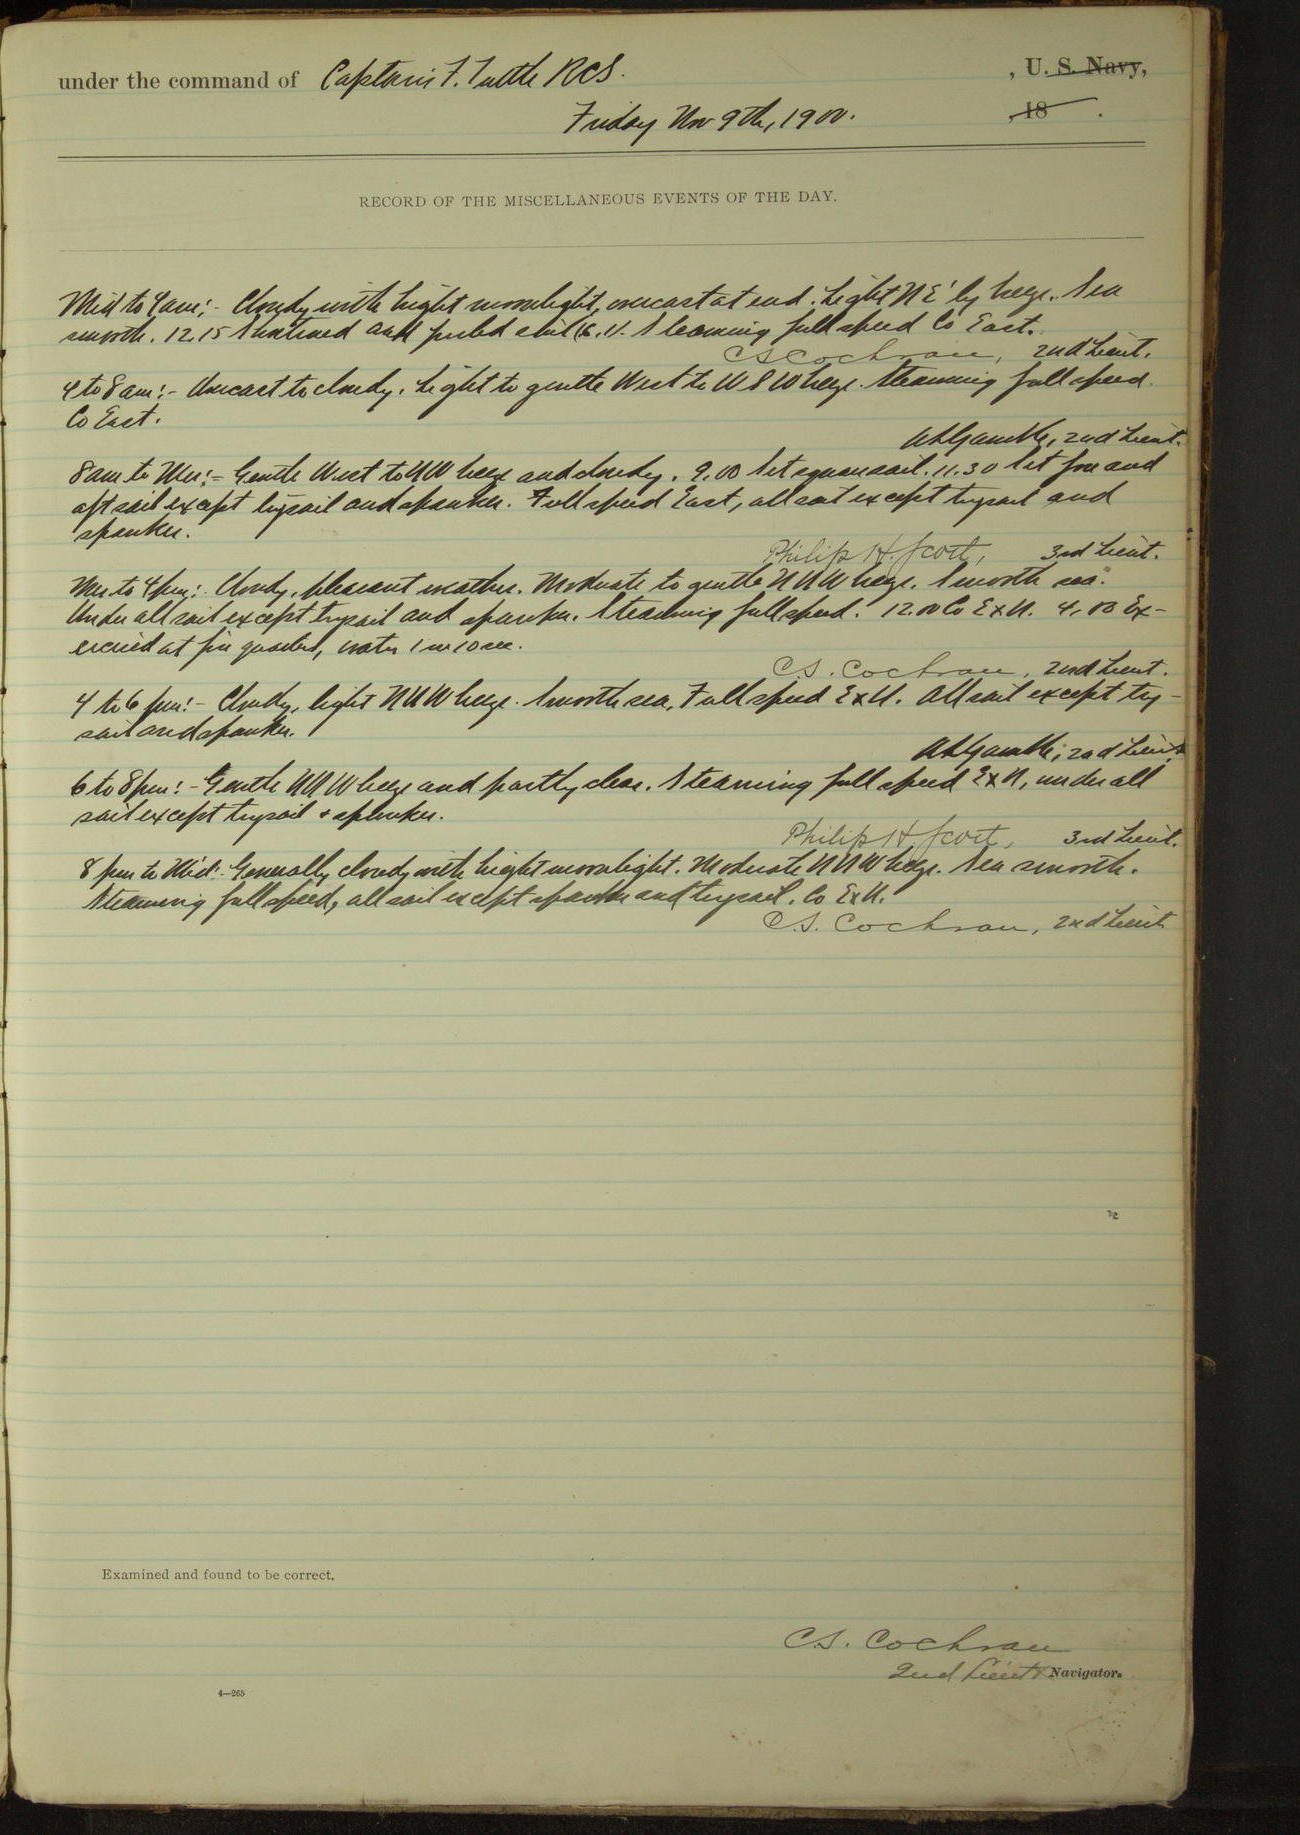 under the command of Captain F. Tuttle RCS. , U. S. Navy,
Friday Nov 9th, 1900. , 18 .
RECORD OF THE MISCELLANEOUS EVENTS OF THE DAY.
Mid to 4 am:- Cloudy with bright moonlight, overcast at end. Light N E'ly breeze. Sea
smooth. 12.15 Shortened and furled Steaming full speed Co East.
C S Cochran, 2nd Lieut.
4 to 8 am:- Overcast to cloudy. Light to gentle West to W S W breeze. Steaming full speed
Co East.
A L Gamble, 2nd Lieut.
8 am to Mer:- Gentle West to N W breeze and cloudy. 9.00 Set squaresail. 11.30 Set fore and
aft sail except trysail and spanker. Full speed East, all sail except trysail and
spanker.
Philip H. Scott, 3rd Lieut.
Mer to 4 pm: Cloudy, pleasant weather. Moderate to gentle N N W breeze. Smooth sea.
Under all sail except trysail and spanker. Steaming full speed. 12.00 Co E x N. 4.00 Ex-
ercised at fire quarters, water 1 m 10 sec.
C. S. Cochran, 2nd Lieut.
4 to 6 pm:- Cloudy, light N N W breeze. Smooth sea, Full speed E x N. All sail except try-
sail and spanker.
A L Gamble, 2nd Lieut.
6 to 8 pm:- Gentle N N W breeze and partly clear. Steaming full speed E x N, under all
sail except trysail + spanker.
Philip H Scott, 3rd Lieut.
8 pm to Mid: Generally cloudy with bright moonlight. Moderate N N W breeze. Sea smooth.
Steaming full speed, all sail except spanker and trysail. Co E x N.
C. S. Cochran, 2nd Lieut.
Examined and found to be correct.
C. S. Cochran
2nd Lieut Navigator.
4—265